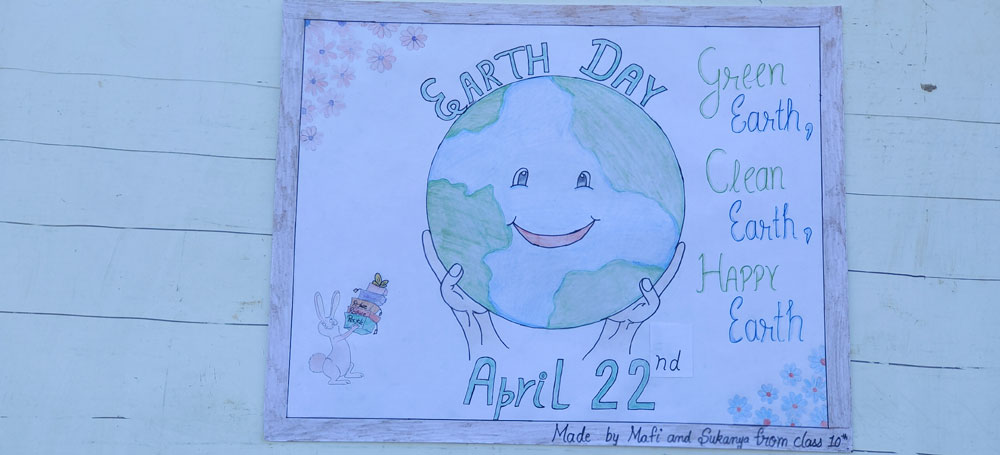 EARTH DAY
Green
Earth,
Clean
Earth,
HAPPY
Earth
April 22nd
Made by Mafi and Sukanya from class 10th